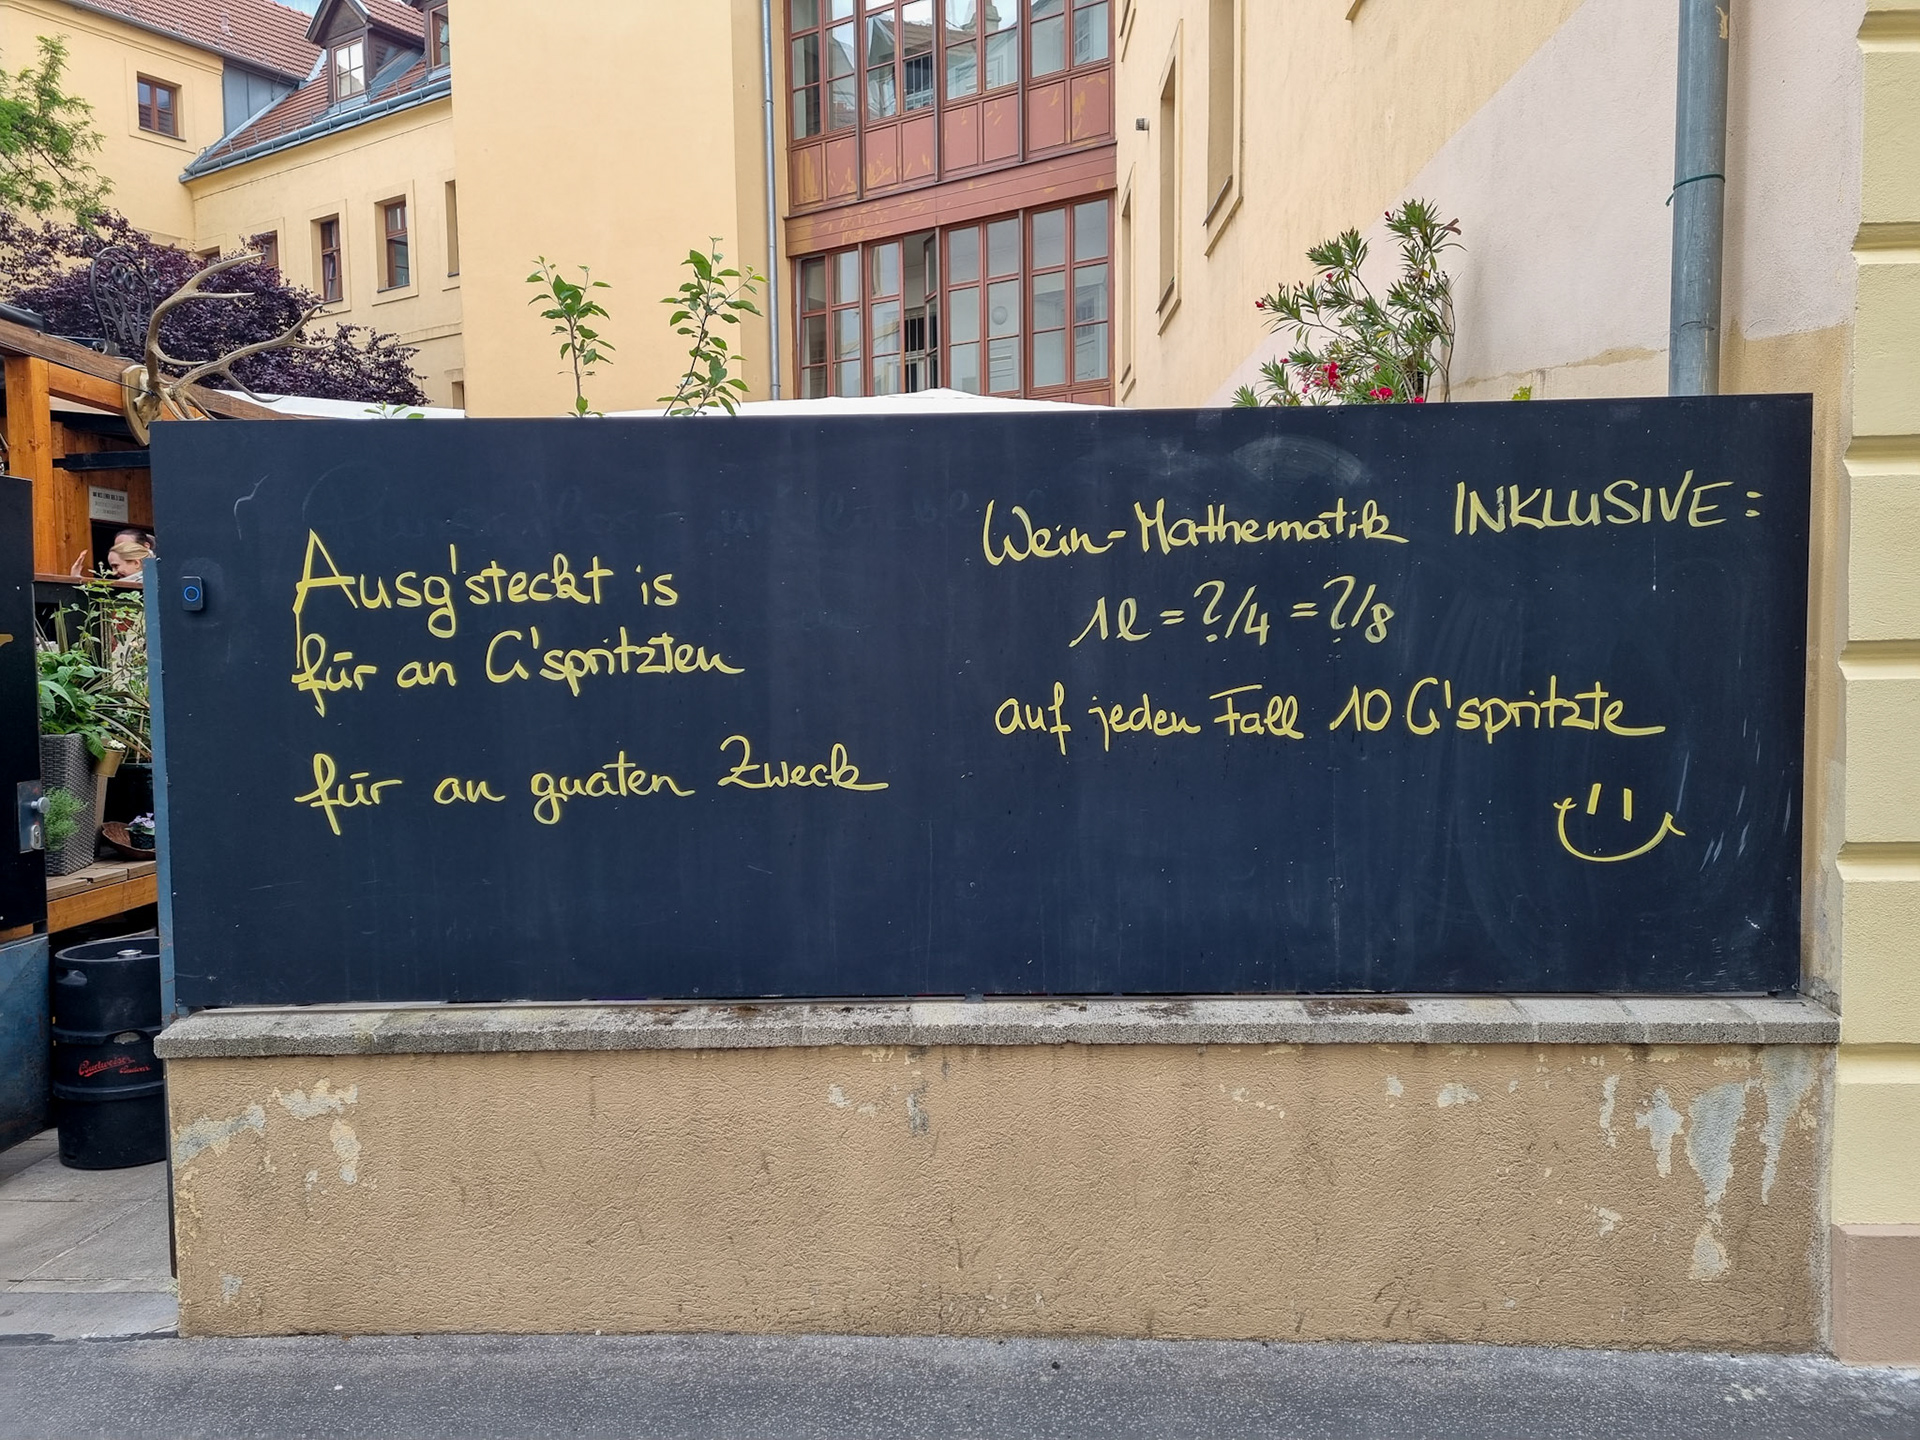 Ausg'steckt is
für an G'spritzten
für an guaten Zweck
Wein-Mathematik INKLUSIVE:
1l = ?/4 = ?/8
auf jeden Fall 10 G'spritzte
Budweiser